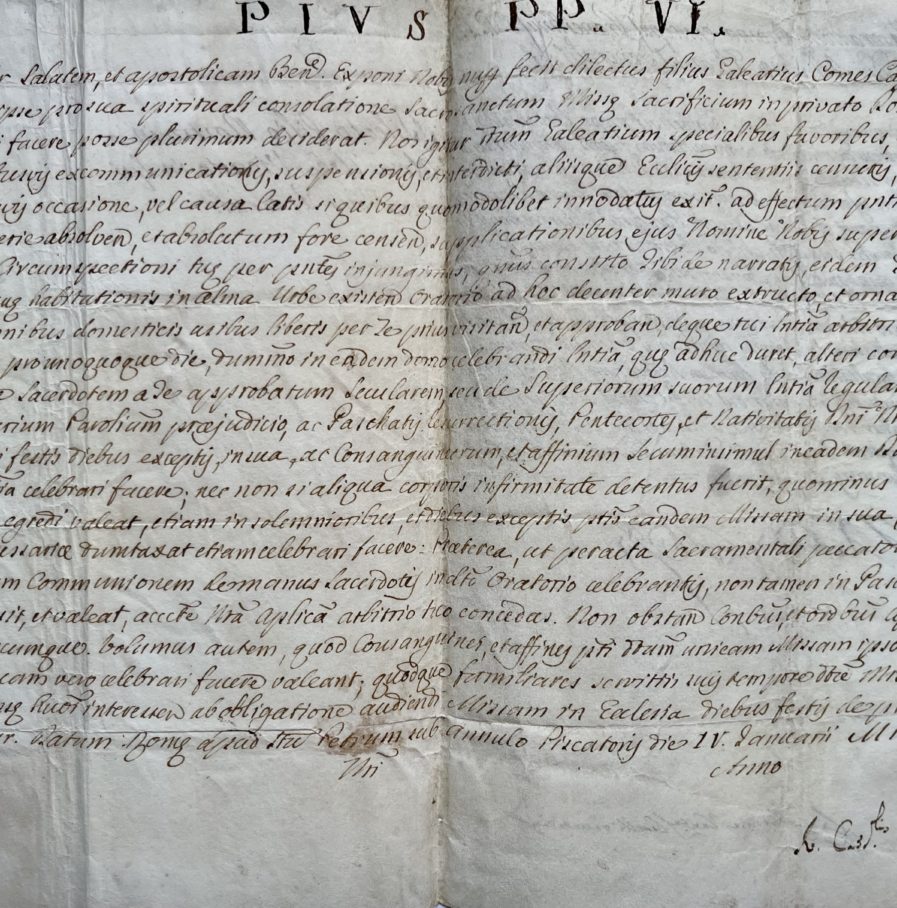 PIVS PP. VI.
Salutem, et apostolicam Ben̄. Exponi Nobis nup̄ fecit dilectus filius Galeatius Comes Ca
ipse pro sua spirituali consolatione Sacrosanctum Missę Sacrificium in privato
facere posse plurimum desiderat. Nos igitur dtum̄ Galeatium specialibus favoribus,
excommunicationis, suspensionis, et interdicti, aliisque Ecclicis̄ sententiis censuris,
occasione, vel causa latis si quibus quomodolibet innodatus exit̄. ad effectum pntī
serie absolven̄, et absolutum fore censen̄, supplicationibus ejus Nomine Nobis super
Circumspectioni tuę per pntes̄ injungimus, quus̄ constito tibi de narratis, eidem
suę habitationis in alma Urbe existen̄ Oratorio ad hoc decenter muro extructo, et orna
omnibus domesticis usibus liberis per Te prius visitan̄, et approban̄, deque tui lntīa arbitri
pro unoquoque die, dummō in eadem domo celebrandi lntīa, quę adhuc duret, alteri con
Sacerdotem a Te approbatum Secularem, seu de Superiorum suorum lntīa regula
jurium Parolium̄ præjudicio, ac Paschatis Resurrectionis, Pentecostes, et Nativitatis Dnī N
festis diebus exceptis, in sua, ac Consanguineorum, et affinium secum insimul in eadem
celebrari facere; nec non si aliqua corporis infirmitate detentus fuerit, quominus
egredi valeat, etiam in solemnioribus, et diebus exceptis ptīs eandem Missam in sua
dumtaxat etiam celebrari facere: Præterea, ut peracta Sacramentali peccator
Communionem de manus Sacerdotis in dtō Oratorio celebrantis, non tamen in Pasc
et valeat, accetē Ntrā Aplicā arbitrio tuo concedas. Non obstan̄ Conbūs, et ordbūs ap
cumque. Volumus autem, quod Consanguinei, et affines ptī dtum̄ unicam Missam ipso
vero celebrari facere valeant; quodque familiares servitiis suis tempore dtæ Mi
hujōi interessen̄ ab obligatione audiendi Missam in Ecclesia diebus festis de p
Datum Romę apud Stūm Petrum sub annulo Piscatoris die IV. Januarii M
Nri
Anno
Card.